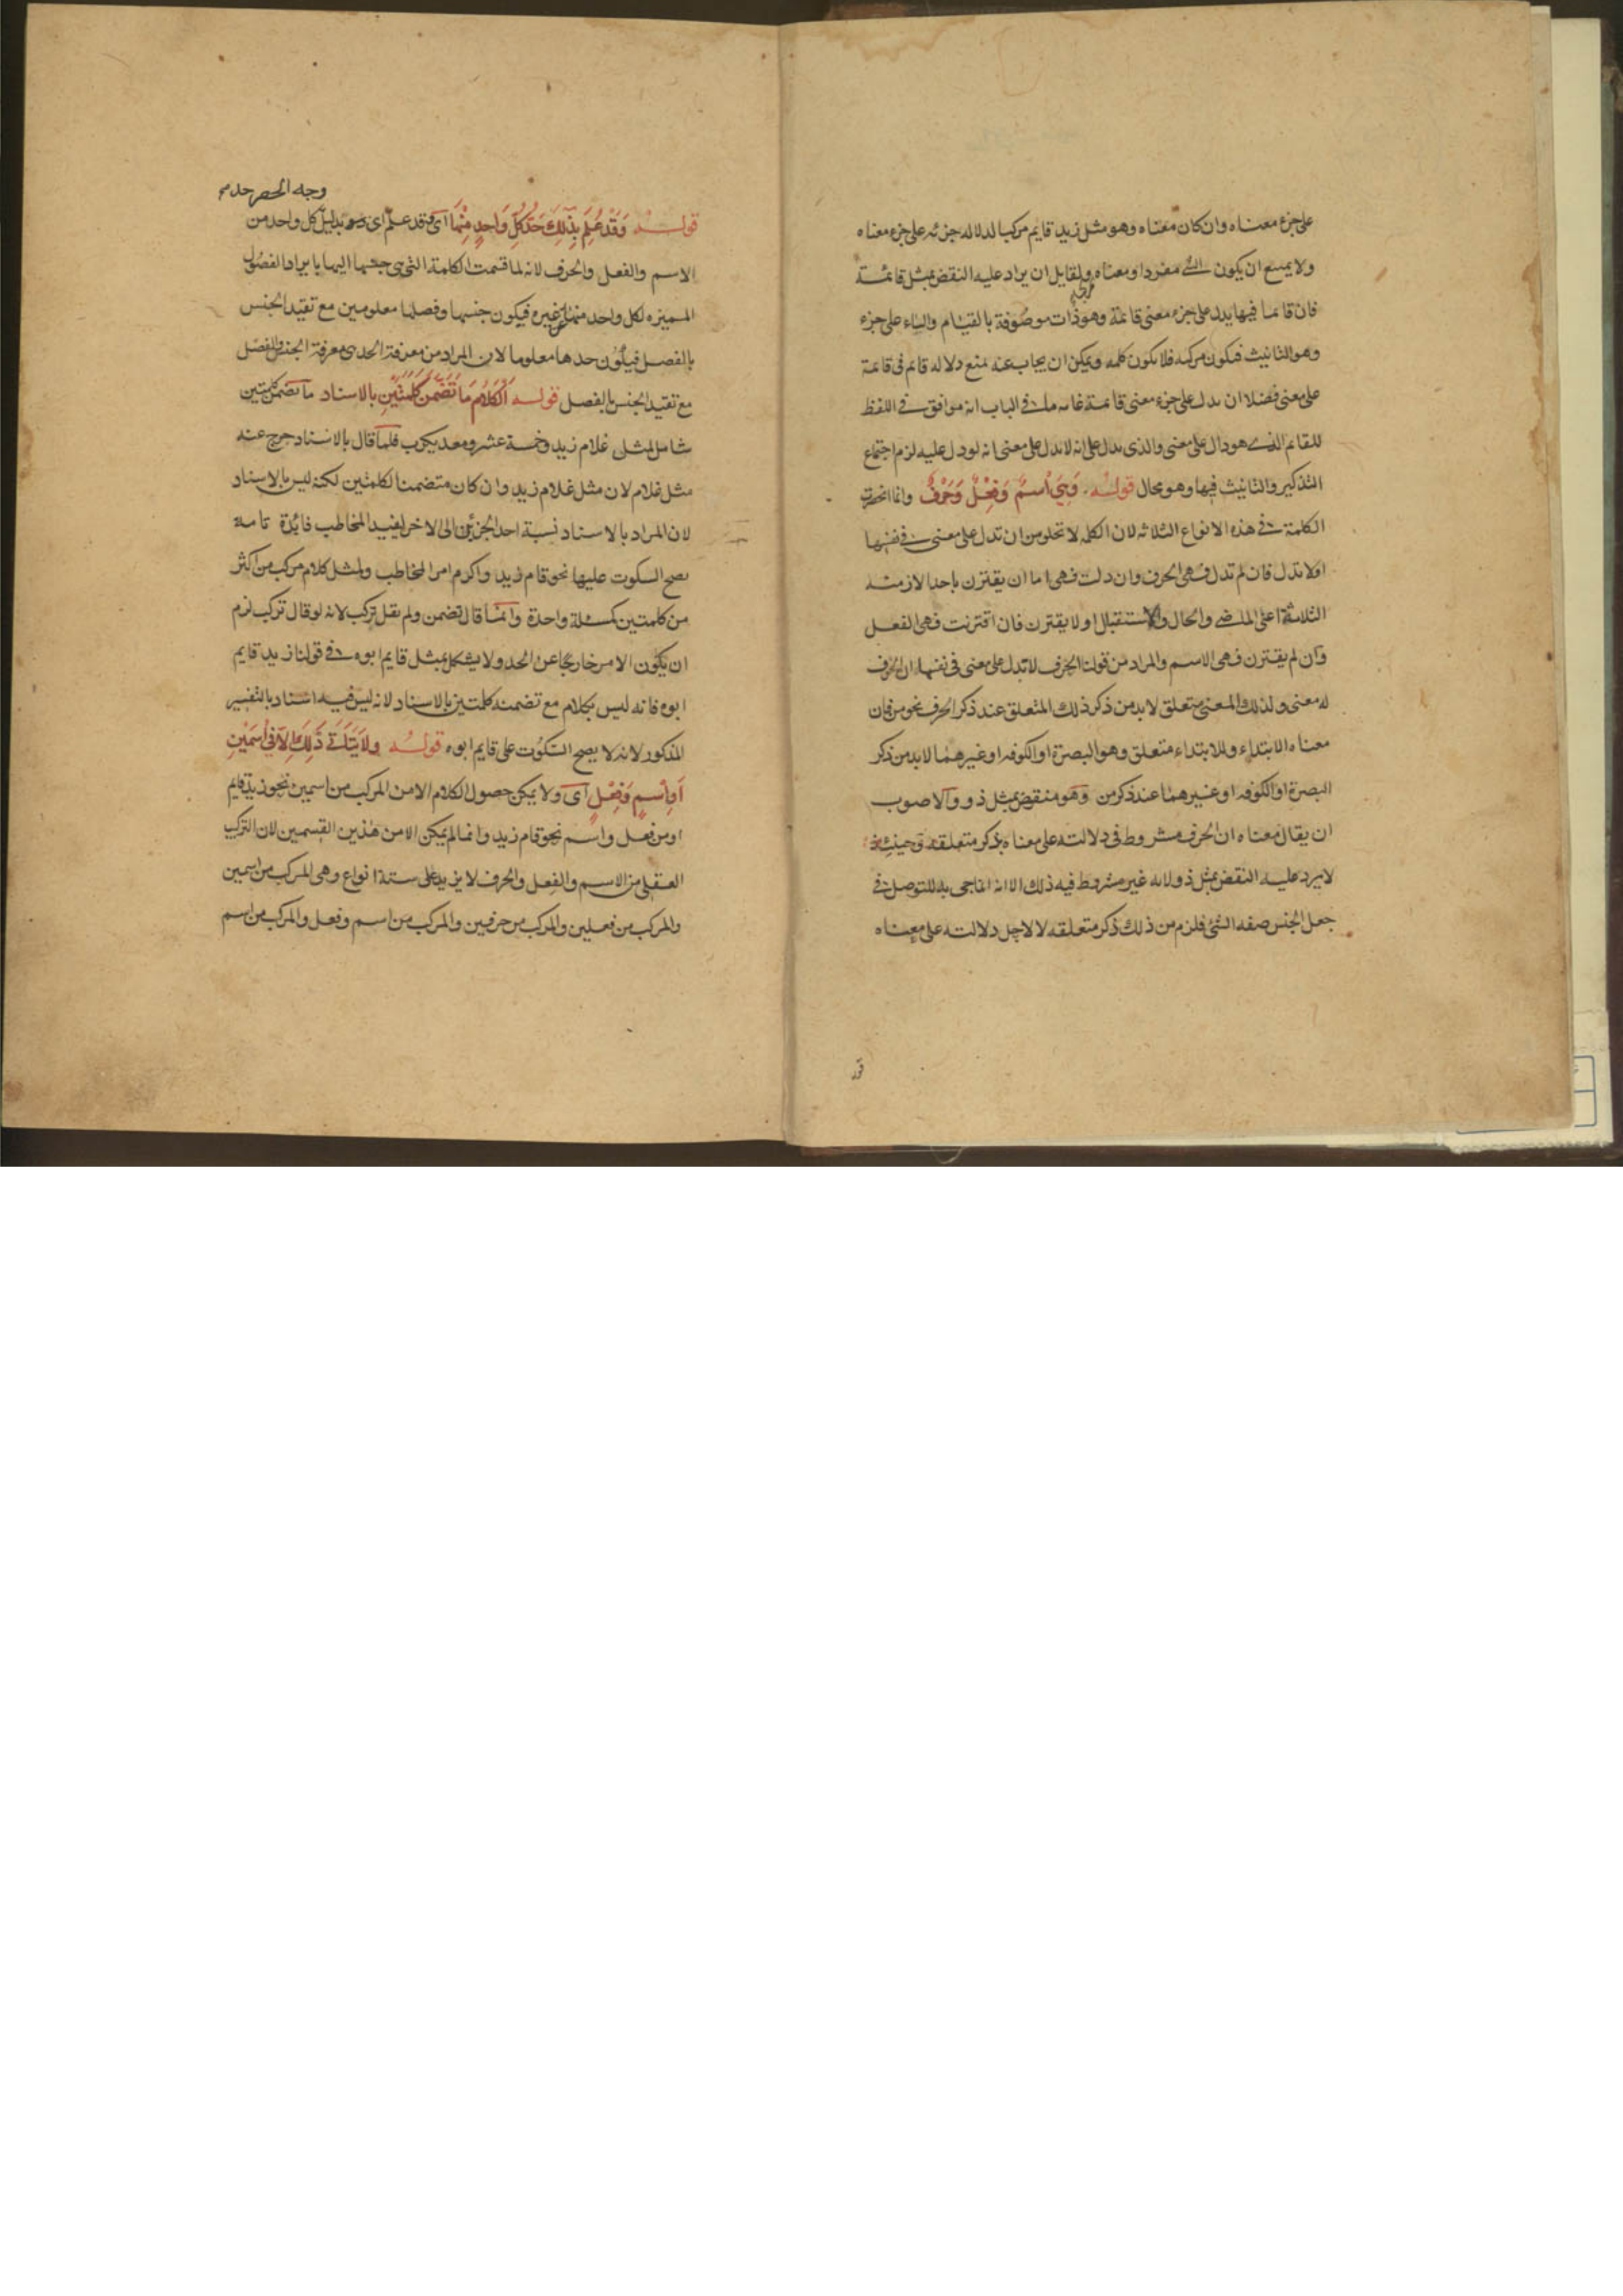 على جزء معناه وان كان معناه وهو مثل زيد قايم مركبا لدلاله جزئه على جزء معناه
ولا يمتنع ان يكون مفردا ومعناه ولقايل ان يراد عليه النقض بمثل قائمة
مركبا
فان قائما فيها يدل على جزء معنى قائمة وهو ذات موصوفة بالقيام والتاء على جزء
وهو التانيث فيكون مركبه فلا يكون كلمه ويمكن ان يجاب عنه بمنع دلاله قائم فى قائمة
على معنى فضلا ان يدل على جزء معنى قائمة غايه ما فى الباب انه موافق فى اللفظ
للقائم الذى هو دال على معنى والذى يدل على انه لا يدل على معنى انه لو دل عليه لزم اجتماع
التذكير والتانيث فيها وهو محال قوله وَهِيَ اسمٌ وَفِعْلٌ وَحَرْفٌ وانما انحصرت
الكلمة فى هذه الانواع الثلاثه لان الكلمه لا تخلو من ان تدل على معنى فى نفسها
او لا تدل فان لم تدل فهى الحرف وان دلت فهى اما ان يقترن باحد الازمنه
الثلاثة اعنى الماضى والحال والاستقبال او لا يقترن فان اقترنت فهى الفعل
وان لم يقترن فهى الاسم والمراد من قولنا الحرف لا تدل على معنى فى نفسها ان الحرف
له معنى ولذلك المعنى متعلق لا بد من ذكر ذلك المتعلق عند ذكر الحرف نحو من فان
معناه الابتداء وللابتداء متعلق وهو البصرة او الكوفه او غيرهما لا بد من ذكر
البصرة او الكوفه او غيرهما عند ذكر من وهو منقوض بمثل ذو والاصوب
ان يقال معناه ان الحرف مشروط فى دلالته على معناه بذكر متعلقه وحينئذ
لا يرد عليه النقض بمثل ذو لانه غير مشروط فيه ذلك الا انه انما جى به للتوصل فى
جعل الجنس صفه الشئ فلزم من ذلك ذكر متعلقه لا لاجل دلالته على معناه
وجه الحصر حد
قوله وَقَدْ عُلِمَ بِذٰلِكَ حَدُّ كُلِّ وَاحِدٍ مِنْهَا اى وقد علم اى بدليل كل واحد من
الاسم والفعل والحرف لانه لما قسمت الكلمة التى هى جنسها اليها بايراد الفصول
المميزه لكل واحد منها عن غيره فيكون جنسها وفصلها معلومين مع تقيد الجنس
بالفصل فيكون حدها معلوما لان المراد من معرفة الحد هى معرفة الجنس والفصل
مع تقيد الجنس بالفصل قوله اَلْكَلَامُ مَا تَضَمَّنَ كَلِمَتَيْنِ بالاسناد ما تضمن كلمتين
شامل لمثل غلام زيد وخمسة عشر ومعديكرب فلما قال بالاسناد خرج عنه
مثل غلام لان مثل غلام زيد وان كان متضمنا لكلمتين لكنه ليس بالاسناد
لان المراد بالاسناد نسبة احد الجزئين الى الاخر ليفيد المخاطب فائدة تامه
يصح السكوت عليها نحو قام زيد واكرم امر المخاطب ولمثل كلام مركب من اكثر
من كلمتين كمسئلة واحدة وانما قال تضمن ولم يقل تركب لانه لو قال تركب لزم
ان يكون الامر خارجا عن الحد ولا يشكل بمثل قايم ابوه فى قولنا زيد قايم
ابوه فانه ليس بكلام مع تضمنه كلمتين بالاسناد لانه ليس فيه اسناد بالتفسير
المذكور لانه لا يصح السكوت على قايم ابوه قوله ولا يَتَأَتَّى ذٰلِكَ اِلَّا فِى اسْمَيْنِ
اَوِ اسْمٍ وَفِعْلٍ اى ولا يمكن حصول الكلام الا من المركب من اسمين نحو زيد قايم
او من فعل واسم نحو قام زيد وانما لم يمكن الا من هذين القسمين لان التركيب
العقلى من الاسم والفعل والحرف لا يزيد على ستة انواع وهى المركب من اسمين
والمركب من فعلين والمركب من حرفين والمركب من اسم وفعل والمركب من اسم